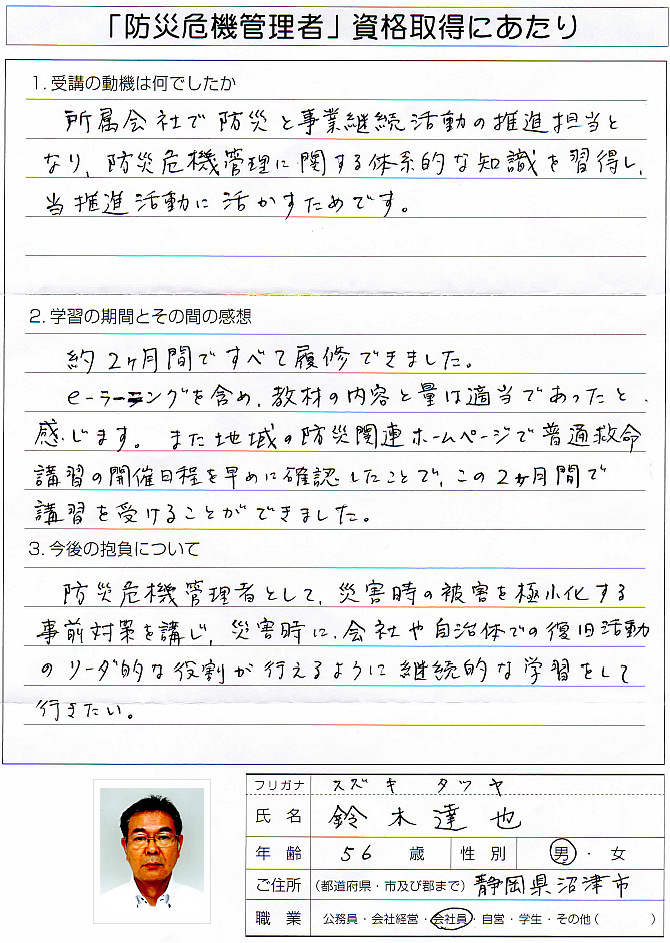 「防災危機管理者」資格取得にあたり
1. 受講の動機は何でしたか
所属会社で防災と事業継続活動の推進担当と
なり、防災危機管理に関する体系的な知識を習得し、
当推進活動に活かすためです。
2. 学習の期間とその間の感想
約2ヶ月間ですべて履修できました。
e-ラーニングを含め、教材の内容と量は適当であったと
感じます。また地域の防災関連ホームページで普通救命
講習の開催日程を早めに確認したことで、この2ヶ月間で
講習を受けることができました。
3. 今後の抱負について
防災危機管理者として、災害時の被害を極小化する
事前対策を講じ、災害時に、会社や自治体での復旧活動
のリーダ的な役割が行えるように継続的な学習をして
行きたい。
フリガナ スズキ タツヤ
氏名 鈴木達也
年齢 56 歳 性別 男・女
ご住所 (都道府県・市及び郡まで) 静岡県沼津市
職業 公務員・会社経営・会社員・自営・学生・その他( )